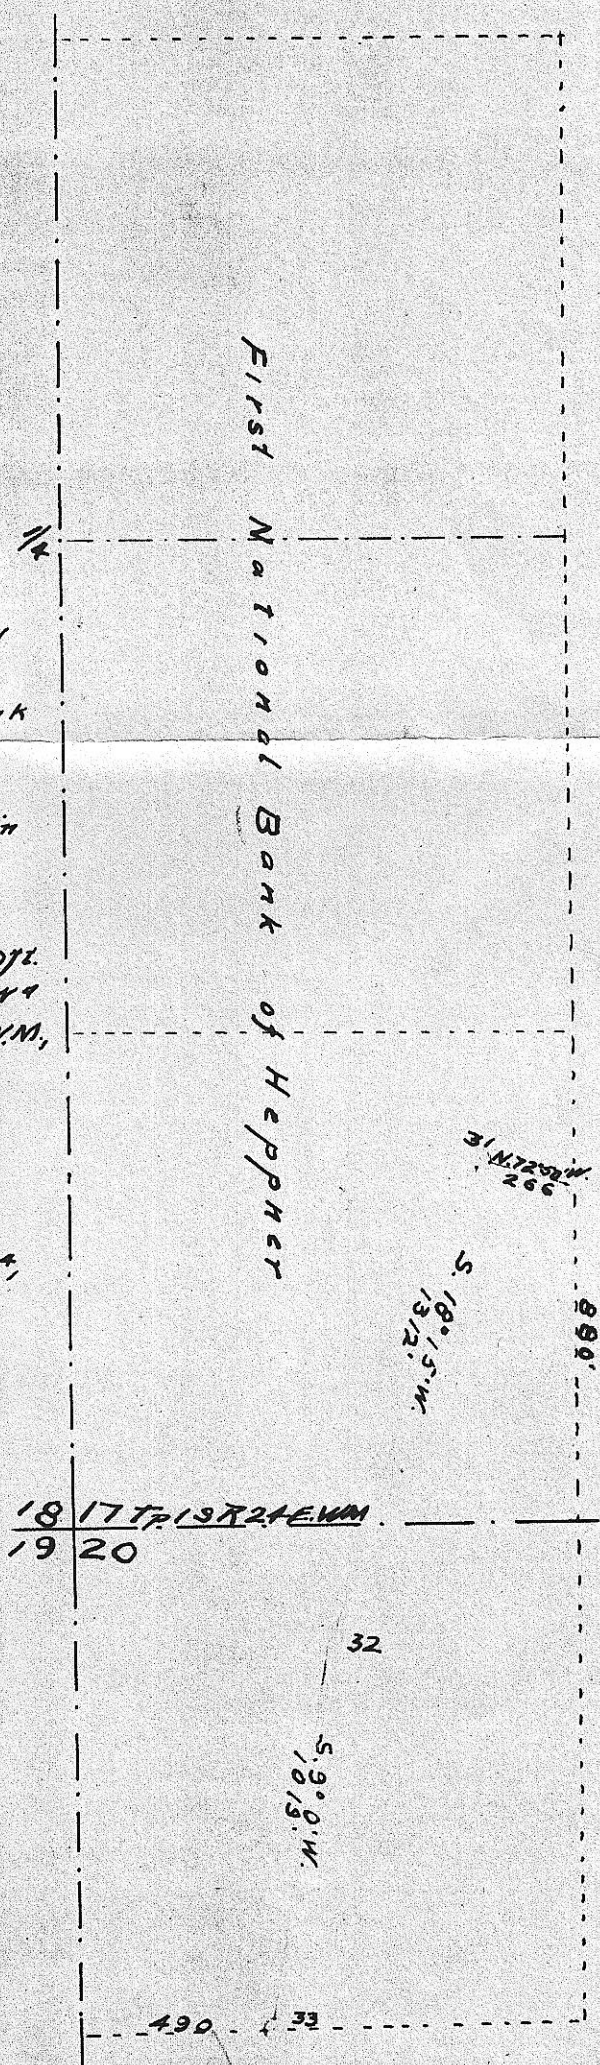 First National Bank of Heppner
1/4
k
in
W.M.,
31
N.72°50'W.
266
S. 18°15'W.
1312.
880'
18 17 Tp 1 S R 24 E. WM
19 20
32
S. 9° 0' W.
1019.
490
33